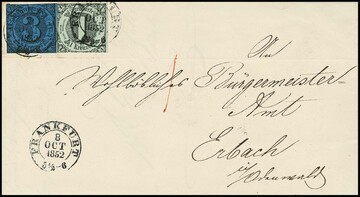 3
1
Kreuzer
1852
An
Wohllöbliches Bürgermeister-
Amt
Erbach
i/Odenwald
FRANKFURT
8
OCT
1852
5½-6